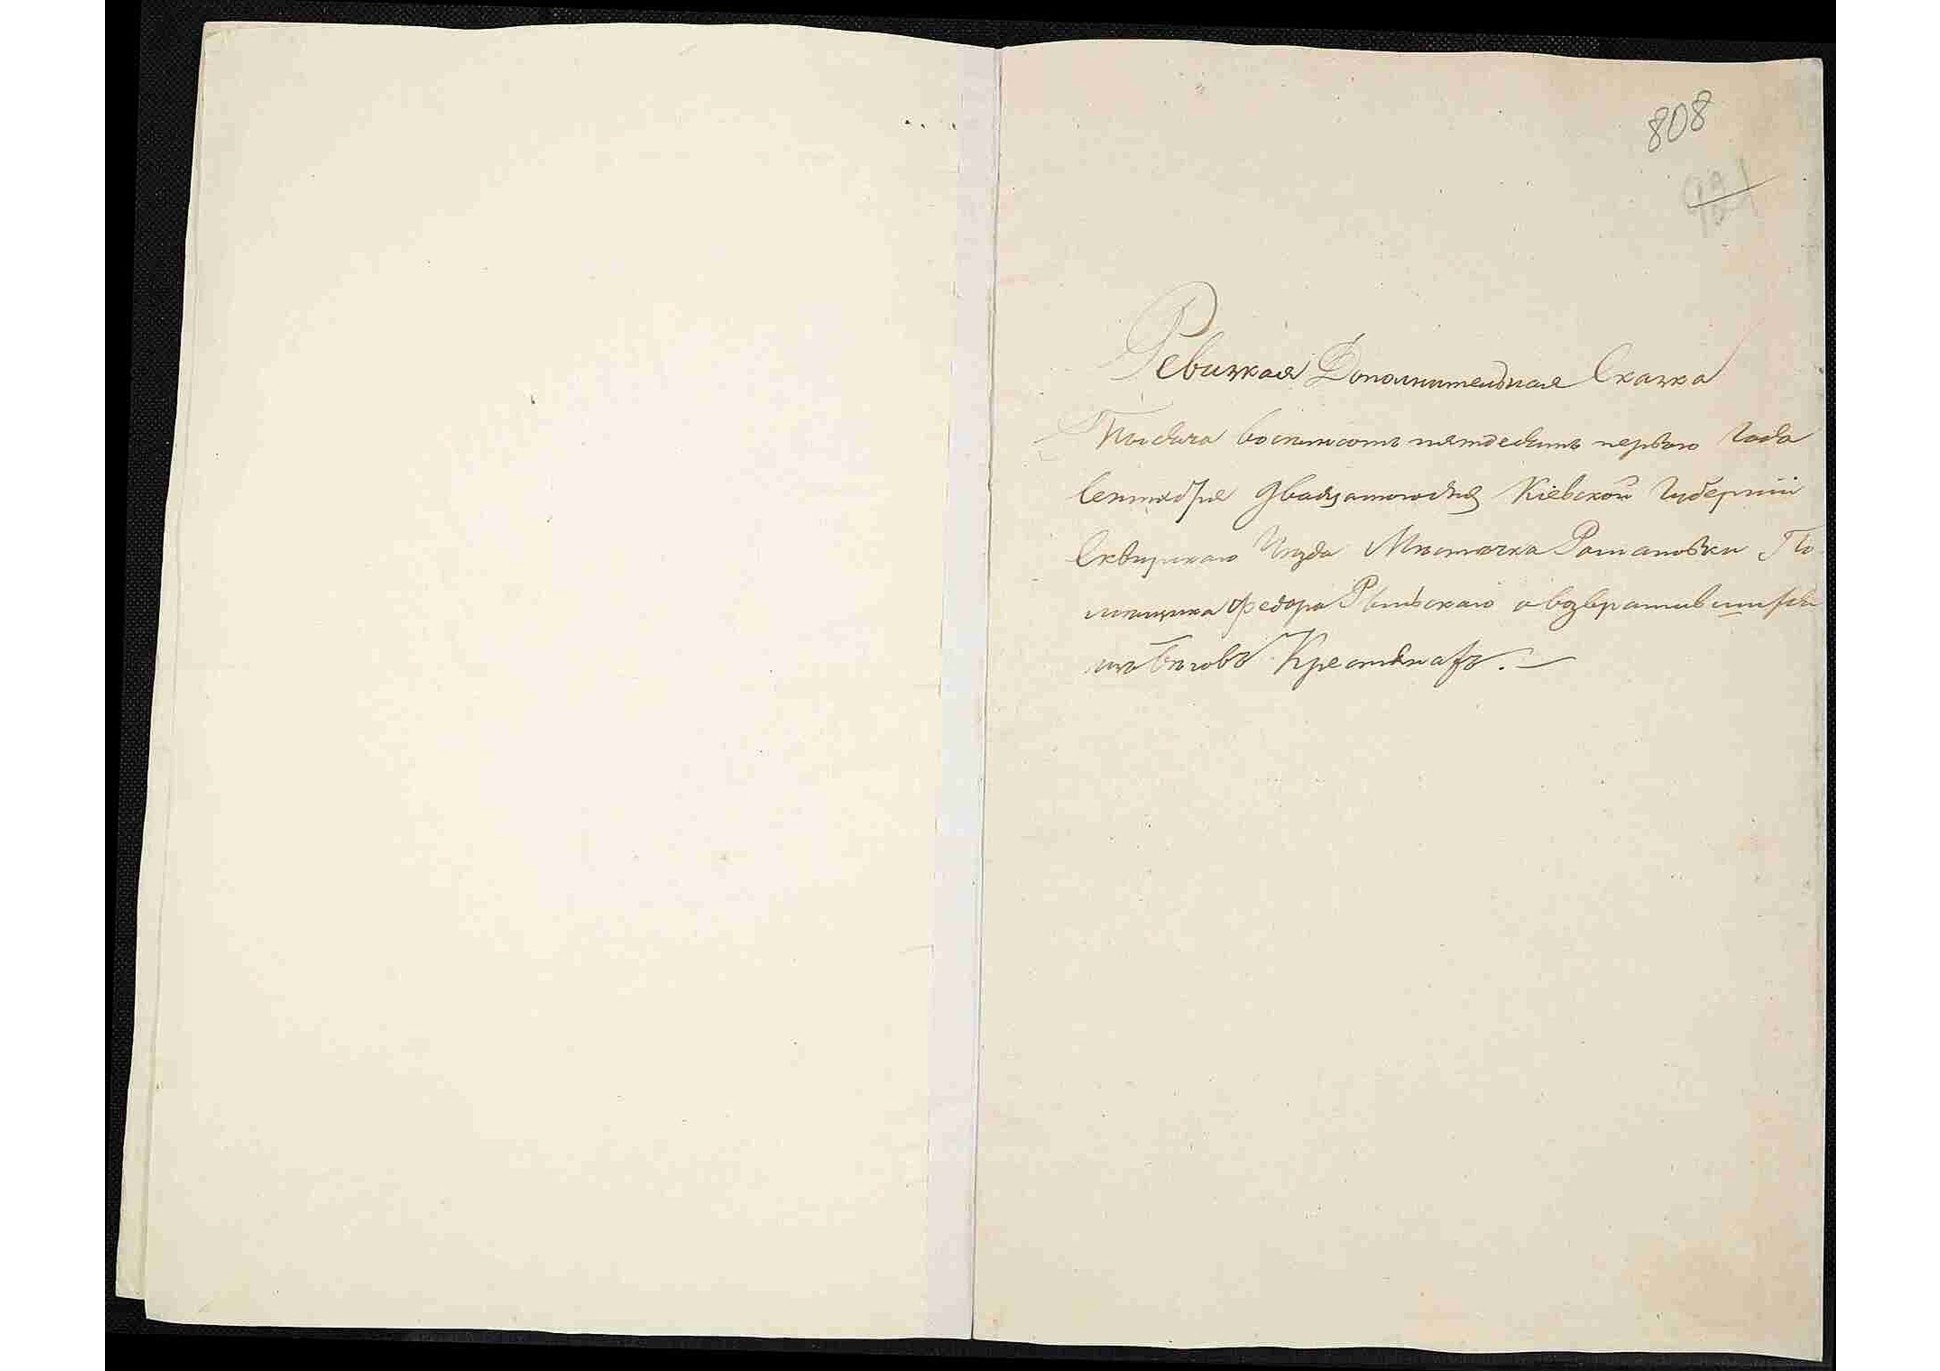 808
Ревизкая Дополнительная Сказка
Тысяча восемьсотъ пятдесятъ перваго Года
Сентября двадцатогодня Кіевской Губерніи
Сквирскаго Уезда Мѣстечка Романовки По-
мещика Федора Рыльскаго о возвратившихся
изъ Бѣговъ Крестянахъ.